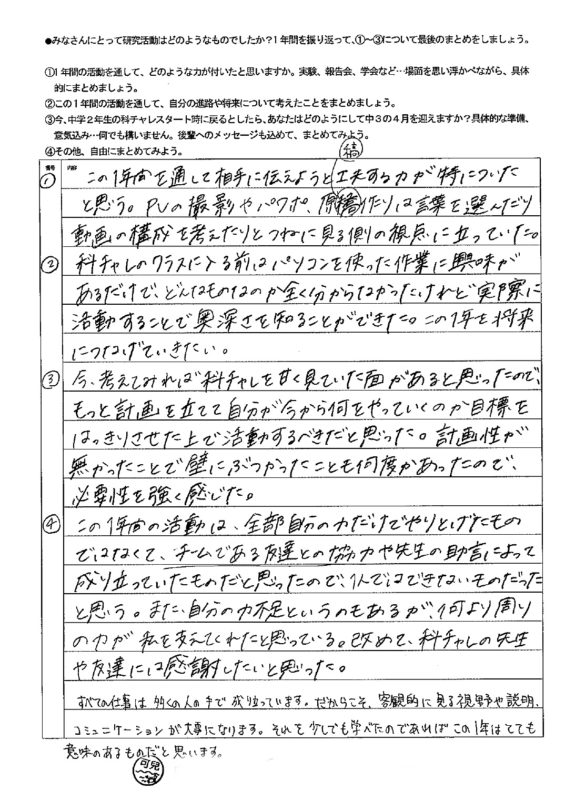 ●みなさんにとって研究活動はどのようなものでしたか？1年間を振り返って、①～③について最後のまとめをしましょう。
①1年間の活動を通して、どのような力が付いたと思いますか。実験、報告会、学会など…場面を思い浮かべながら、具体
的にまとめましょう。
②この1年間の活動を通して、自分の進路や将来について考えたことをまとめましょう。
③今、中学2年生の科チャレスタート時に戻るとしたら、あなたはどのようにして中3の4月を迎えますか？具体的な準備、
意気込み…何でも構いません。後輩へのメッセージも込めて、まとめてみよう。
④その他、自由にまとめてみよう。
番号 内容
稿
① この1年間を通して相手に伝えようと工夫する力が特についた
と思う。PVの撮影やパワポ、原稿だりは言葉を選んだり
動画の構成を考えたりとつねに見る側の視点に立っていた。
② 科チャレのクラスに入る前はパソコンを使った作業に興味が
あるだけで、どんなものなのか全く分からなかったけれど実際に
活動することで奥深さを知ることができた。この1年を将来
につなげていきたい。
③ 今、考えてみれば科チャレを甘く見ていた面があると思ったので、
もっと計画を立てて自分が今から何をやっていくのか目標を
はっきりさせた上で活動するべきだと思った。計画性が
無かったことで壁にぶつかったことも何度かあったので、
必要性を強く感じた。
④ この1年間の活動は、全部自分の力だけでやりとげたもの
ではなくて、チームである友達との協力や先生の助言によって
成り立っていたものだと思ったので、1人ではできないものだった
と思う。また、自分の力不足というのもあるが、何より周り
の力が私を支えてくれたと思っている。改めて、科チャレの先生
や友達には感謝したいと思った。
すべての仕事は多くの人の手で成り立っています。だからこそ、客観的に見る視野や説明、
コミュニケーションが大事になります。それを少しでも学べたのであればこの1年はとても
意味のあるものだと思います。
可児